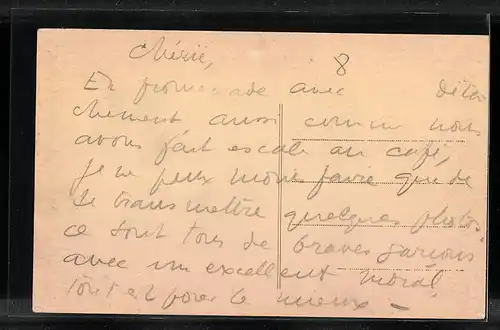 Chérie,
8
En promenade avec déta
chement aussi comme nous
avons fait escale au café,
je ne peux moins faire que de
te transmettre quelques photos
ce sont tous de braves garçons
avec un excellent moral
tout est pour le mieux –